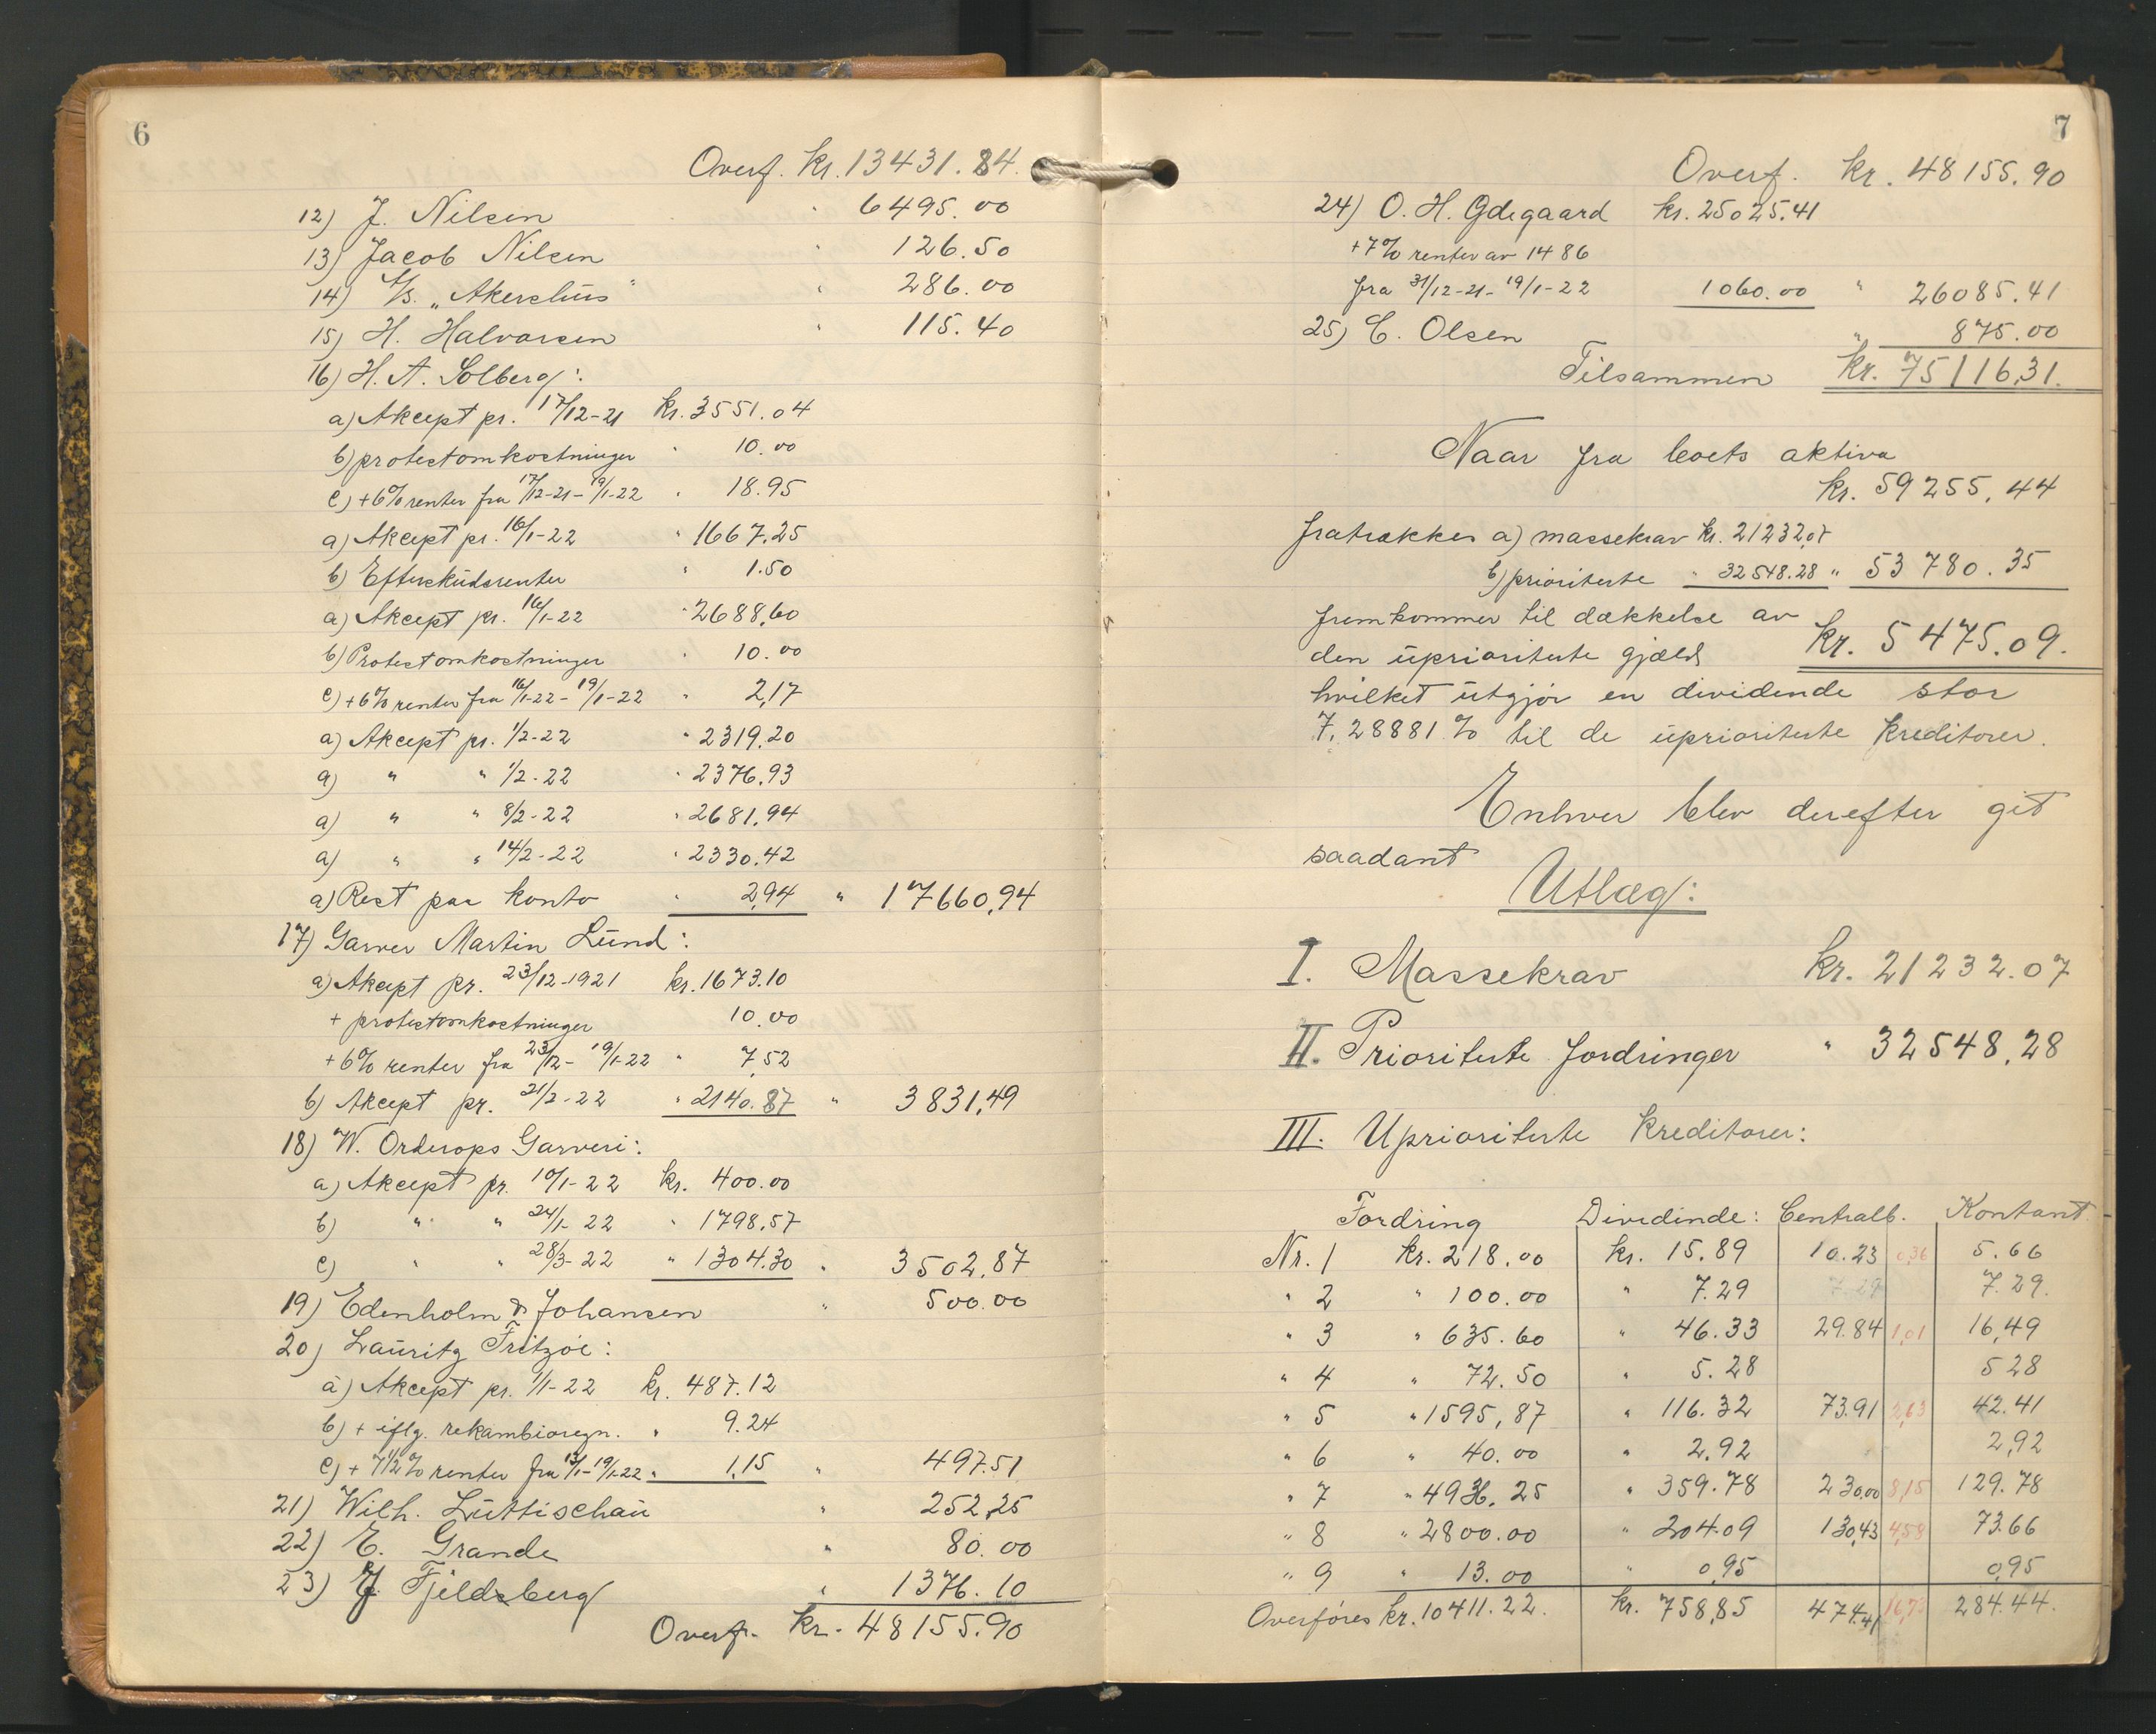 6
Overf. Kr. 13431.84.
12) J. Nilsen " 6495.00
13) Jacob Nilsen " 126.50
14) A/s. „Akershus" " 286.00
15) H. Halvorsen " 115.40
16) H. A. Solberg:
a) Akcept pr. 17/12-21 Kr. 3551.04
b) protestomkostninger " 10.00
c) +6% renter fra 17/12-21-19/1-22 " 18.95
a) Akcept pr. 16/1-22 " 1667.25
b) Efterskudsrenter " 1.50
a) Akcept pr. 16/1-22 " 2688,60
b) Protestomkostninger " 10.00
c) +6% renter fra 16/1-22-19/1-22 " 2,17
a) Akcept pr. 1/2-22 " 2319.20
a) " " 1/2-22 " 2376.93
a) " " 8/2-22 " 2681,94
a) " " 14/2-22 " 2330.42
a) Rest paa konto " 2,94 " 17660,94
17) Garver Martin Lund:
a) Akcept pr. 23/12-1921 kr. 1673.10
+ protestomkostninger 10.00
+6% renter fra 23/12-19/1-22 " 7,52
b) Akcept pr. 21/2-22 " 2140.87 " 3831,49
18) W. Orderops Garveri:
a) Akcept pr. 10/1-22 Kr. 400.00
b) " " 24/1-22 " 1798,57
c) " " 28/3-22 " 1304.30 " 3502,87
19) Edenholm & Johansen " 500.00
20) Lauritz Fritzöe:
a) Akcept pr. 1/1-22 Kr. 487.12
b) + iflg. rekambioregn. " 9.24
c) + 7 1/2% renter fra 13/1-19/1-22 " 1,15 " 497.51
21) Wilh. Lüttischau " 252,25
22) E. Grande " 80.00
23) J. Fjeldsberg " 1376.10
Overf. Kr. 48155.90
7
Overf. Kr. 48155.90
24) O. H. Ødegaard Kr. 25025.41
+7% renter av 1486
fra 31/12-21-19/1-22 1060.00 " 26085.41
25) C. Olsen " 875.00
Tilsammen Kr. 75116,31.
Naar fra boets aktiva
Kr. 59255,44
fratrækkes a) massekrav Kr. 21232,07
b) prioriterte " 32548.28 " 53780.35
fremkommer til dækkelse av
den uprioriterte gjæld Kr. 5475.09.
hvilket utgjör en dividende stor
7,28881% til de uprioriterte kreditorer.
Enhver blev derefter git
saadant
Utlæg:
I. Massekrav Kr. 21232.07
II. Prioriterte fordringer " 32548,28
III. Uprioriterte kreditorer:
Fordring Dividinde: Centralb. Kontant.
Nr. 1 Kr. 218.00 Kr. 15.89 10.23 0,36 5.66
" 2 " 100.00 " 7.29 7.29 7.29.
" 3 " 635.60 " 46.33 29.84 1,01 16,49
" 4 " 72.50 " 5.28 528
" 5 " 1595,87 " 116.32 73.91 2,63 42.41
" 6 " 40.00 " 2.92 2,92
" 7 " 4936.25 " 359.78 230.00 8,15 129.78
" 8 " 2800.00 " 204.09 130,43 4,58 73.66
" 9 " 13.00 " 0,95 0,95
Overföres Kr. 10411.22. Kr. 758,85 474.41 16,73 284.44.